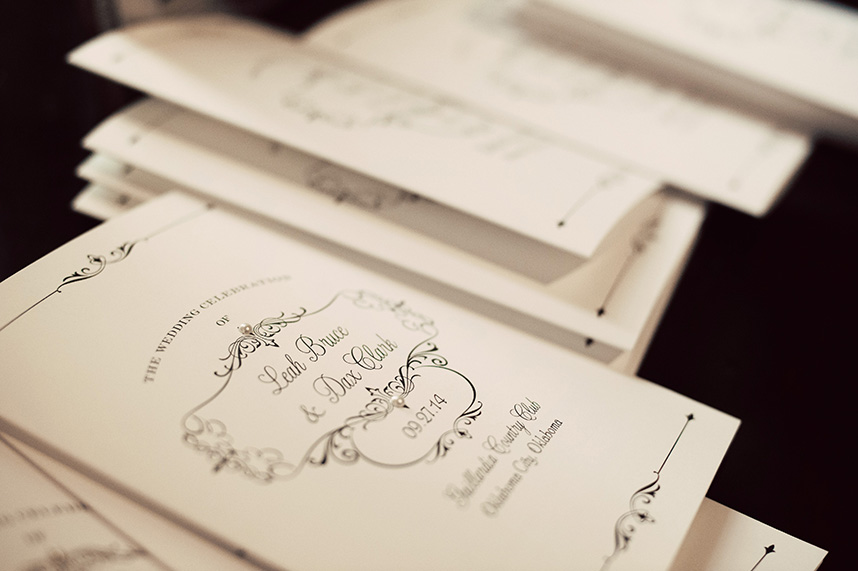 THE WEDDING CELEBRATION
OF
Leah Bruce
& Dax Clark
09.27.14
Gaillardia Country Club
Oklahoma City, Oklahoma